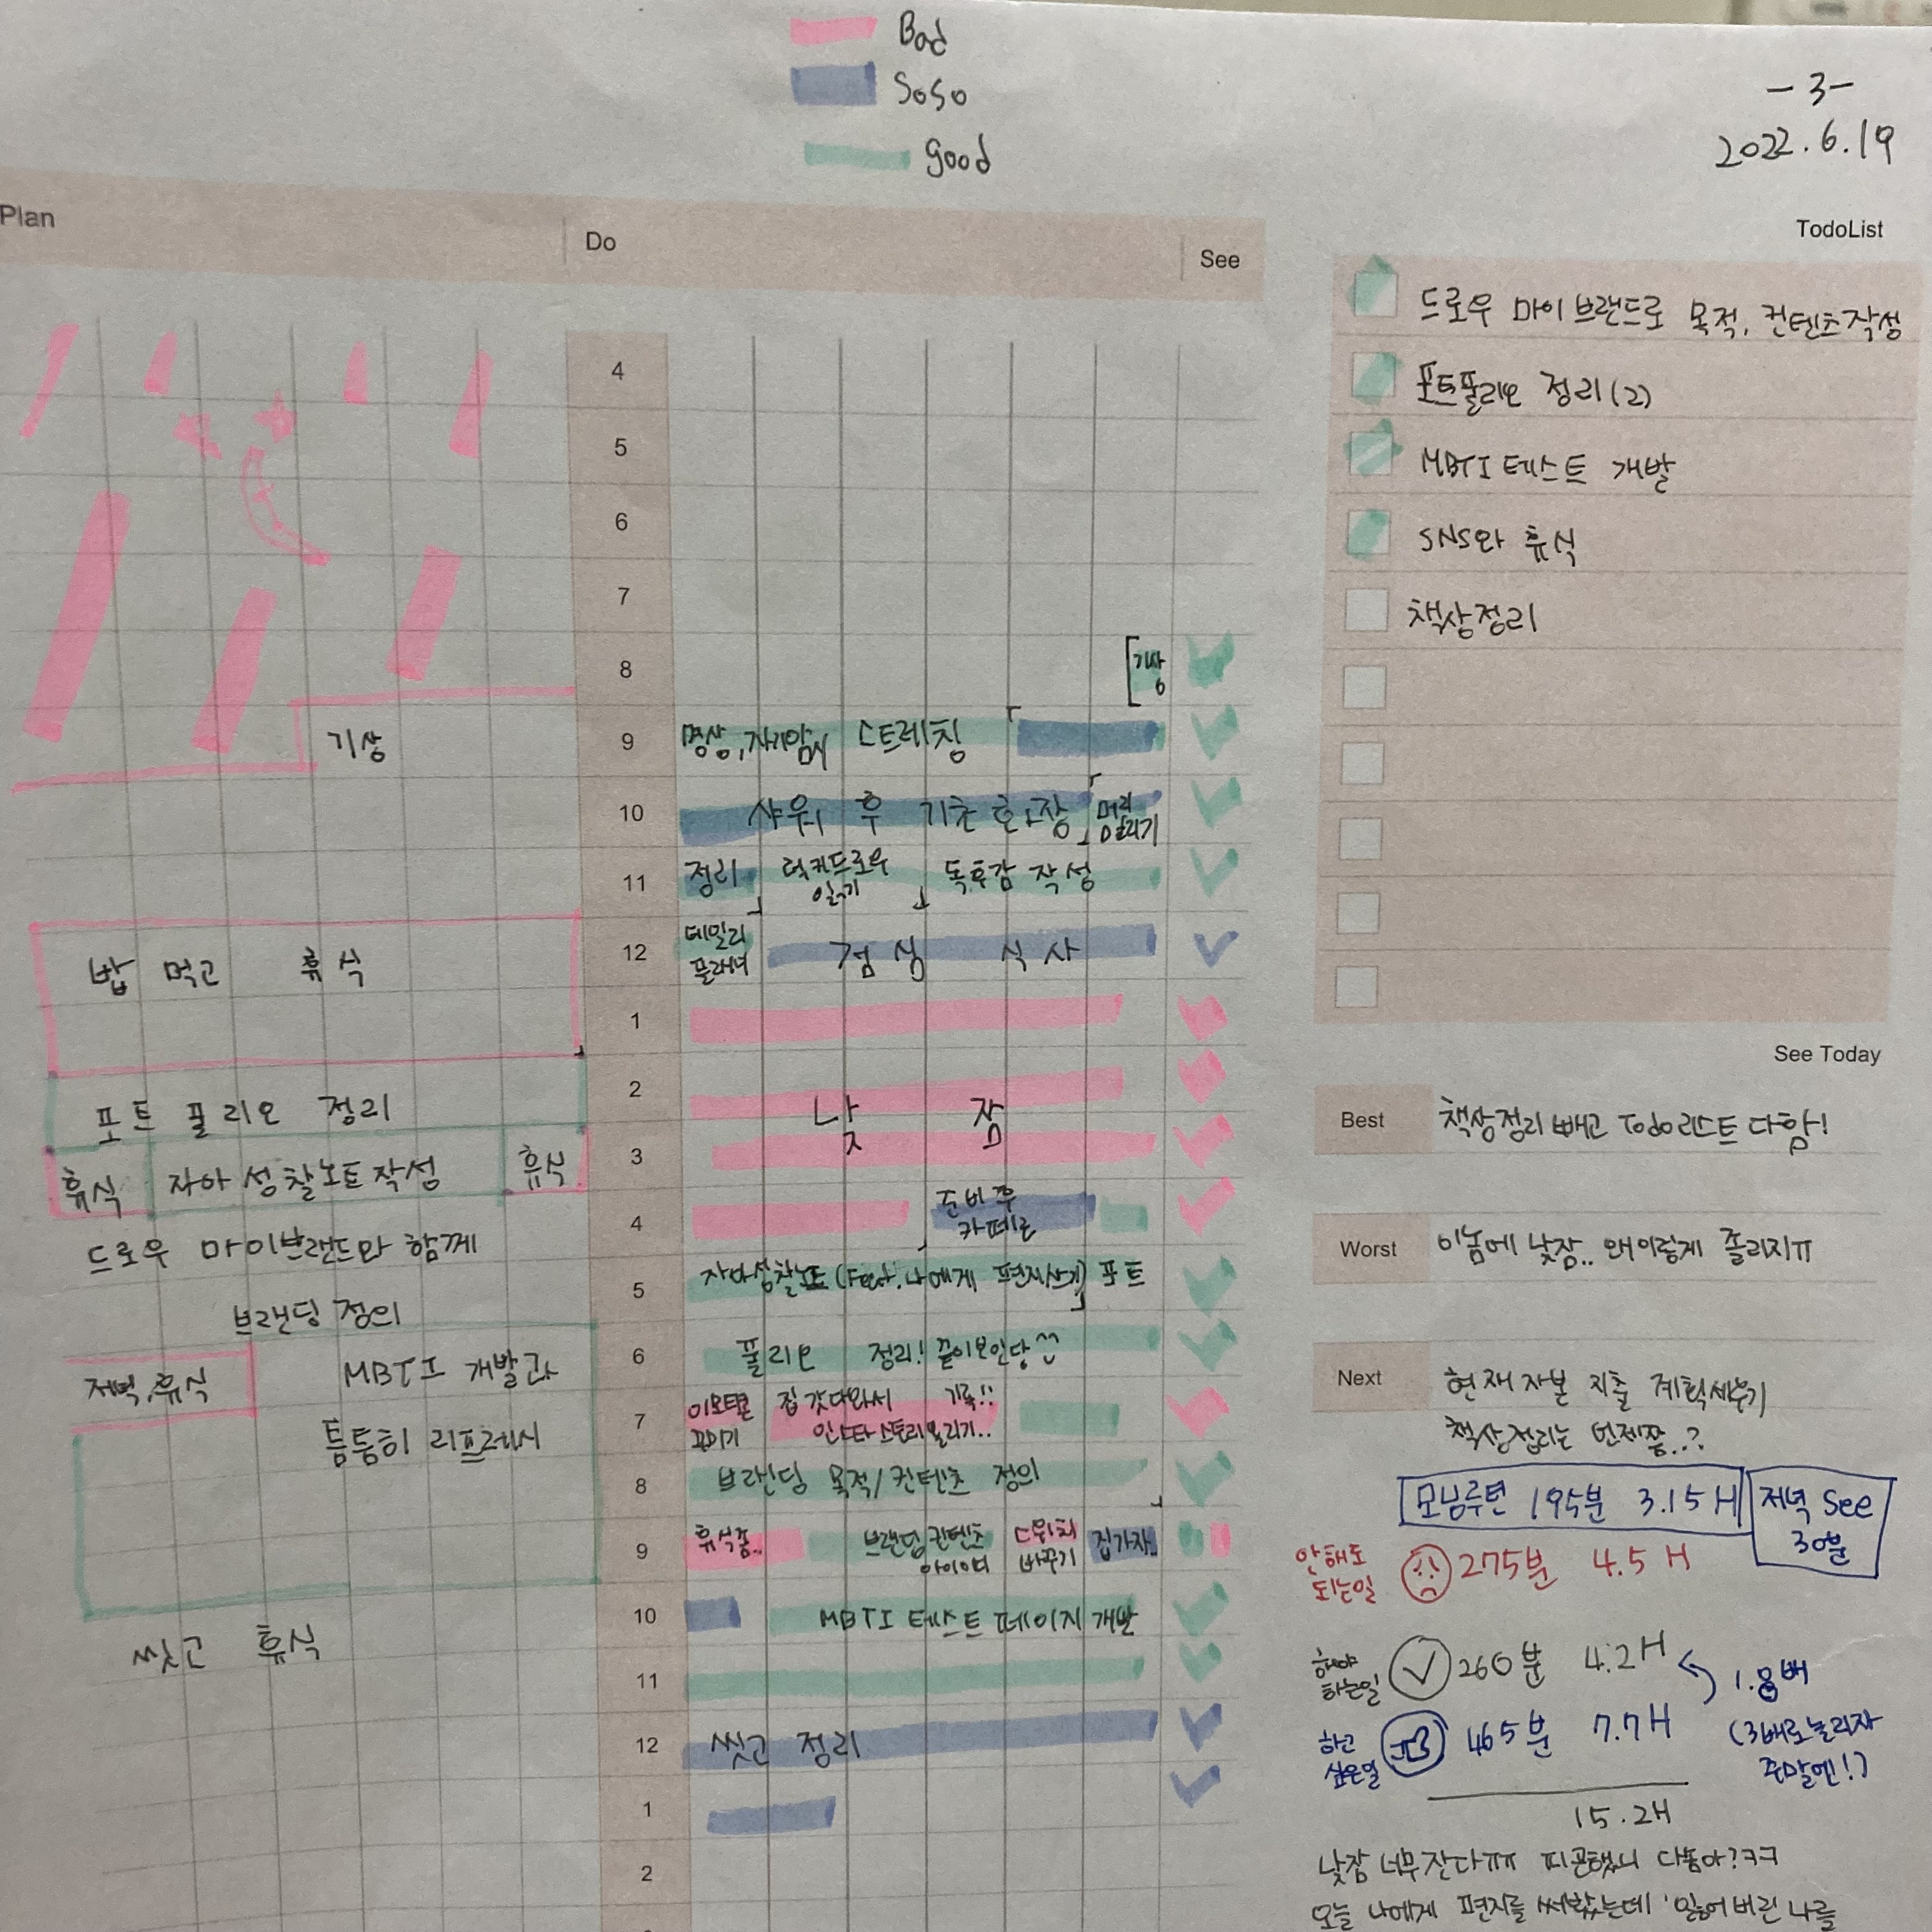 Bad
Soso
good
-3-
2022.6.19
Plan
Do
See
기상
밥 먹고 휴식
포트폴리오 정리
휴식
자아성찰노트작성
휴식
드로우 마이브랜드와 함께
브랜딩 정의
저녁, 휴식
MBTI 개발과
틈틈히 리프레시
씻고 휴식
4
5
6
7
8
기상
9
명상, 자기암시 스트레칭
10
샤워 후 기초 화장
머리
말리기
11
정리
럭키드로우
읽기
독후감 작성
12
데일리
플래너
점심 식사
1
2
낮잠
3
4
준비 후
카페로
5
자아성찰노트 (Feat. 나에게 편지쓰기) 포트
6
폴리오 정리! 끝이보인당^^
7
이모티콘
꾸미기
집 갓다와서 기록!!
인스타 스토리 올리기..
8
브랜딩 목적/컨텐츠 정의
9
휴식쫌..
브랜딩 컨텐츠
아이디어
스위치
바꾸기
집가자..
10
MBTI 테스트 페이지 개발
11
12
씻고 정리
1
2
TodoList
드로우 마이브랜드로 목적, 컨텐츠작성
포트폴리오 정리(2)
MBTI 테스트 개발
SNS와 휴식
책상정리
See Today
Best
책상정리 빼고 Todo리스트 다함!
Worst
이놈에 낮잠.. 왜이렇게 졸리지ㅠ
Next
현재 자본 지출 계획세우기
책상정리는 언제쯤..?
모닝루틴 195분 3.15H
저녁 See
30분
안해도
되는일
275분 4.5H
해야
하는일
260분 4.2H
1.8배
하고
싶은일
465분 7.7H
(3배로 늘리자
주말엔!)
15.2H
낮잠 너무 잔다ㅠㅠ 피곤했니 다솜아?ㅋㅋ
오늘 나에게 편지를 써봤는데 '잃어버린 나를